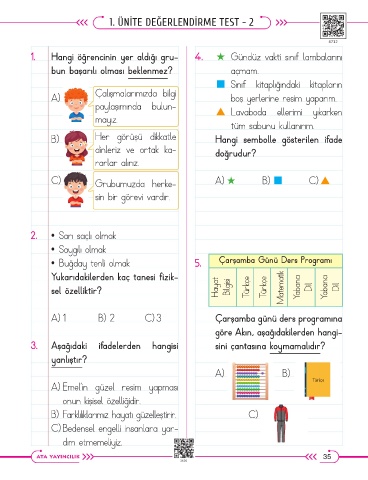 1. ÜNİTE DEĞERLENDİRME TEST - 2
1. Hangi öğrencinin yer aldığı gru-
bun başarılı olması beklenmez?
A) Çalışmalarımızda bilgi
paylaşımında bulun-
mayız.
B) Her görüşü dikkatle
dinleriz ve ortak ka-
rarlar alırız.
C) Grubumuzda herke-
sin bir görevi vardır.
2. • Sarı saçlı olmak
• Saygılı olmak
• Buğday tenli olmak
Yukarıdakilerden kaç tanesi fizik-
sel özelliktir?
A) 1 B) 2 C) 3
3. Aşağıdaki ifadelerden hangisi
yanlıştır?
A) Emel'in güzel resim yapması
onun kişisel özelliğidir.
B) Farklılıklarımız hayatı güzelleştirir.
C) Bedensel engelli insanlara yar-
dım etmemeliyiz.
4. ★ Gündüz vakti sınıf lambalarını
açmam.
■ Sınıf kitaplığındaki kitapların
boş yerlerine resim yaparım.
▲ Lavaboda ellerimi yıkarken
tüm sabunu kullanırım.
Hangi sembolle gösterilen ifade
doğrudur?
A) ★ B) ■ C) ▲
5. Çarşamba Günü Ders Programı
Hayat Bilgisi
Türkçe
Türkçe
Matematik
Yabancı Dil
Yabancı Dil
Çarşamba günü ders programına
göre Akın, aşağıdakilerden hangi-
sini çantasına koymamalıdır?
A) B) Türkçe
C)
ATA YAYINCILIK
35